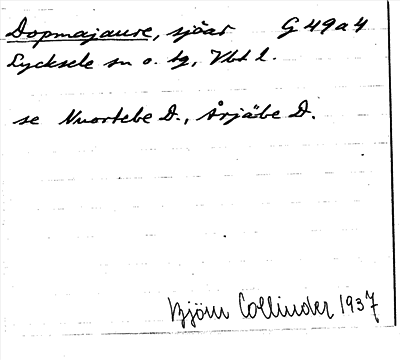 Dopmajaure, sjöar G 49 a 4
Lycksele sn o. tg, Vbt l.
se Nuortebe D., Årjäbe D.
Björn Collinder 1937